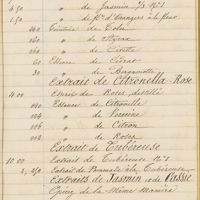 4.50 " de Jasmin, 7/8 N°1
1.50 " de fl. d'Oranger à la fleur
400 Teinture de Tolu
" de Styrax
" de Civette
60 Essence de Cédrat
30 " de Bergamotte
Extrait de Citronella-Rose
4.00 Extrait de Roses
010 Essence de Citronille
006 " de Verveine
004 " de Citron
004 " de Roses
Extrait de Tubéreuse
10.00 Extrait de Tubéreuse N°1
Extrait de Pommade à la Tubéreuse
Extraits de Jasmin et de Cassie
de la Même Manière